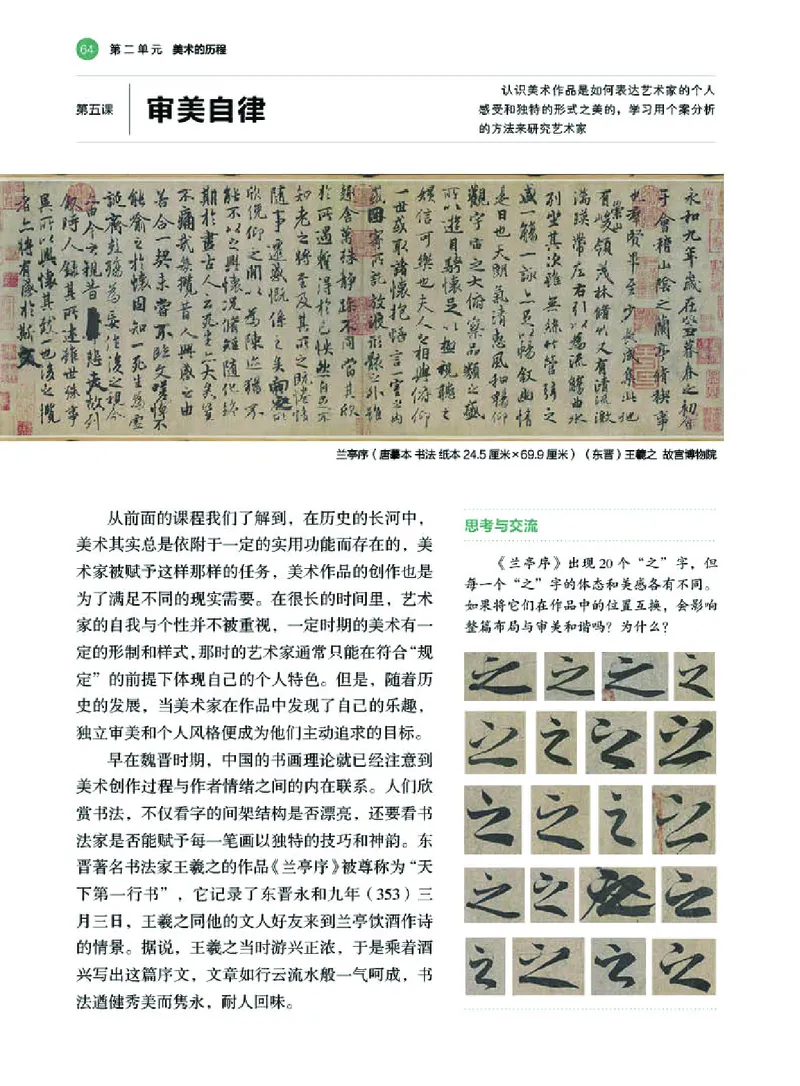 64 第二单元 美术的历程
第五课
审美自律
认识美术作品是如何表达艺术家的个人
感受和独特的形式之美的，学习用个案分析
的方法来研究艺术家
永和九年歲在癸丑暮春之初會
于會稽山陰之蘭亭脩禊事
也群賢畢至少長咸集此地
有崇山峻領茂林脩竹又有清流激
湍暎帶左右引以為流觴曲水
列坐其次雖無絲竹管弦之
盛一觴一詠亦足以暢敘幽情
是日也天朗氣清惠風和暢仰
觀宇宙之大俯察品類之盛
所以遊目騁懷足以極視聽之
娛信可樂也夫人之相與俯仰
一世或取諸懷抱悟言一室之內
或因寄所託放浪形骸之外雖
趣舍萬殊靜躁不同當其欣
於所遇蹔得於己怏然自足不
知老之將至及其所之既惓情
隨事遷感慨係之矣向之所
欣俛仰之閒以為陳跡猶不
能不以之興懷況脩短隨化終
期於盡古人云死生亦大矣豈
不痛哉每攬昔人興感之由
若合一契未嘗不臨文嗟悼不
能喻之於懷固知一死生為虛
誕齊彭殤為妄作後之視今
亦由今之視昔悲夫故列
敘時人錄其所述雖世殊事
異所以興懷其致一也後之攬
者亦將有感於斯文
兰亭序（唐摹本 书法 纸本 24.5 厘米×69.9 厘米）（东晋）王羲之 故宫博物院
从前面的课程我们了解到，在历史的长河中，
美术其实总是依附于一定的实用功能而存在的，美
术家被赋予这样那样的任务，美术作品的创作也是
为了满足不同的现实需要。在很长的时间里，艺术
家的自我与个性并不被重视，一定时期的美术有一
定的形制和样式，那时的艺术家通常只能在符合“规
定”的前提下体现自己的个人特色。但是，随着历
史的发展，当美术家在作品中发现了自己的乐趣，
独立审美和个人风格便成为他们主动追求的目标。
早在魏晋时期，中国的书画理论就已经注意到
美术创作过程与作者情绪之间的内在联系。人们欣
赏书法，不仅看字的间架结构是否漂亮，还要看书
法家是否能赋予每一笔画以独特的技巧和神韵。东
晋著名书法家王羲之的作品《兰亭序》被尊称为“天
下第一行书”，它记录了东晋永和九年（353）三
月三日，王羲之同他的文人好友来到兰亭饮酒作诗
的情景。据说，王羲之当时游兴正浓，于是乘着酒
兴写出这篇序文，文章如行云流水般一气呵成，书
法遒健秀美而隽永，耐人回味。
思考与交流
《兰亭序》出现 20 个“之”字，但
每一个“之”字的体态和美感各有不同。
如果将它们在作品中的位置互换，会影响
整篇布局与审美和谐吗？为什么？
之 之 之 之
之 之 之 之
之 之 之 之
之 之 之 之
之 之 之 之